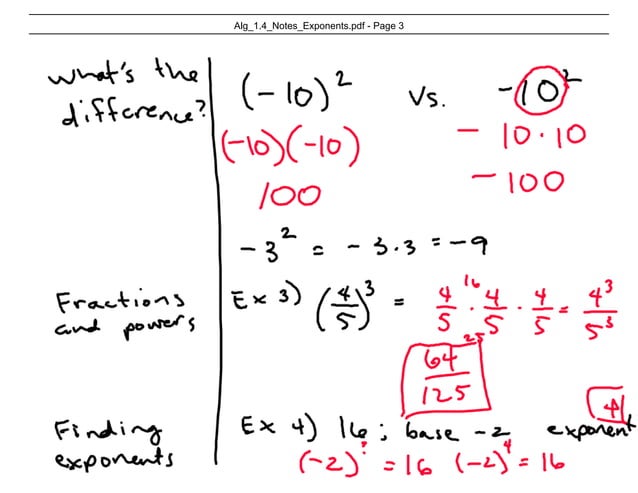 Alg_1.4_Notes_Exponents.pdf - Page 3
What's the difference?
(-10)² vs. -10²
(-10)(-10) - 10·10
100 -100
-3² = -3·3 = -9
Fractions and powers
Ex 3) (4/5)³ = 4/5 · 4/5 · 4/5 = 4³/5³
16
25
64/125
Finding exponents
Ex 4) 16; base -2 exponent 4
(-2)^? = 16 (-2)⁴ = 16